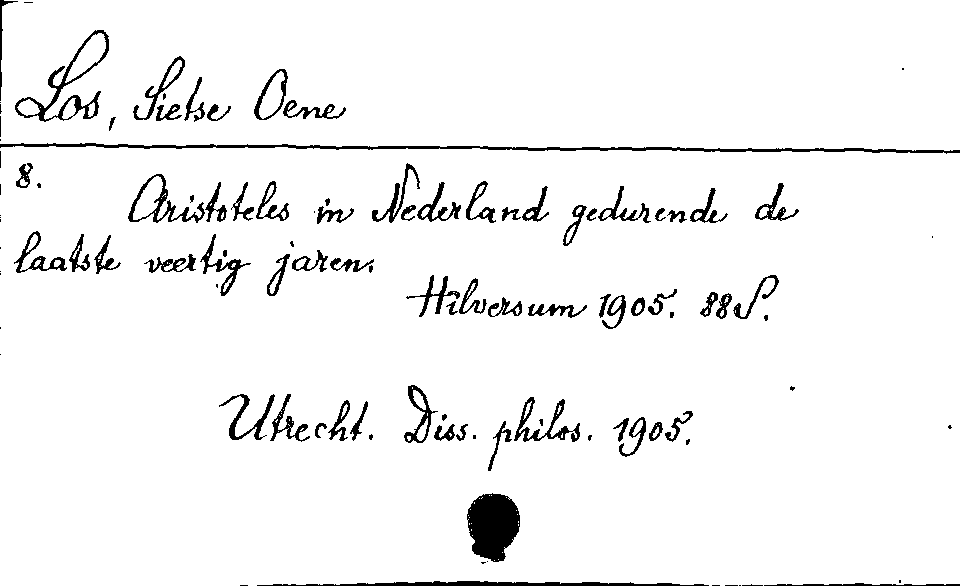 Los, Sietse Oene
8.
Aristoteles in Nederland gedurende de
laatste veertig jaren.
Hilversum 1905. 88 S.
Utrecht. Diss. philos. 1905.